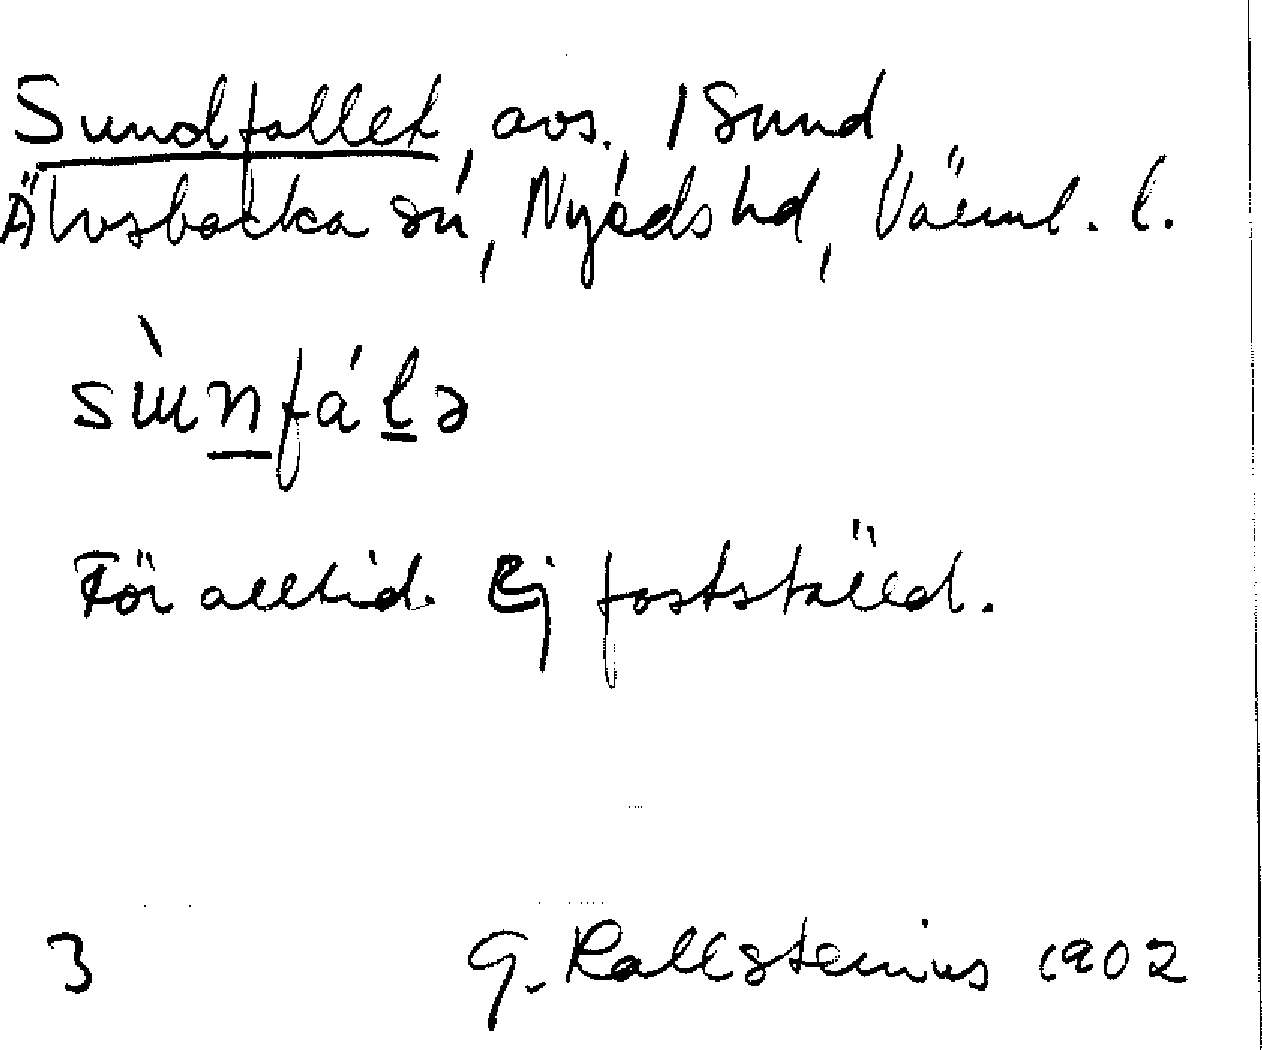 Sundfallet, avs. 1 Sund,
Älvsbacka sn, Nyeds hd, Värml. l.
sùnfálə
För alltid. Ej fastställd.
3 G. Kallstenius 1902